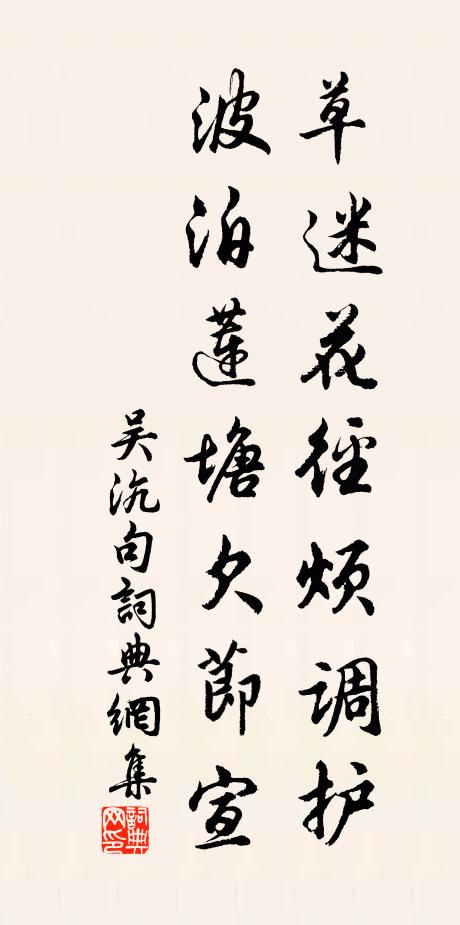 草迷花径烦调护
波泊蓮塘欠節宣
吴沆句詞典網集
詞典網印